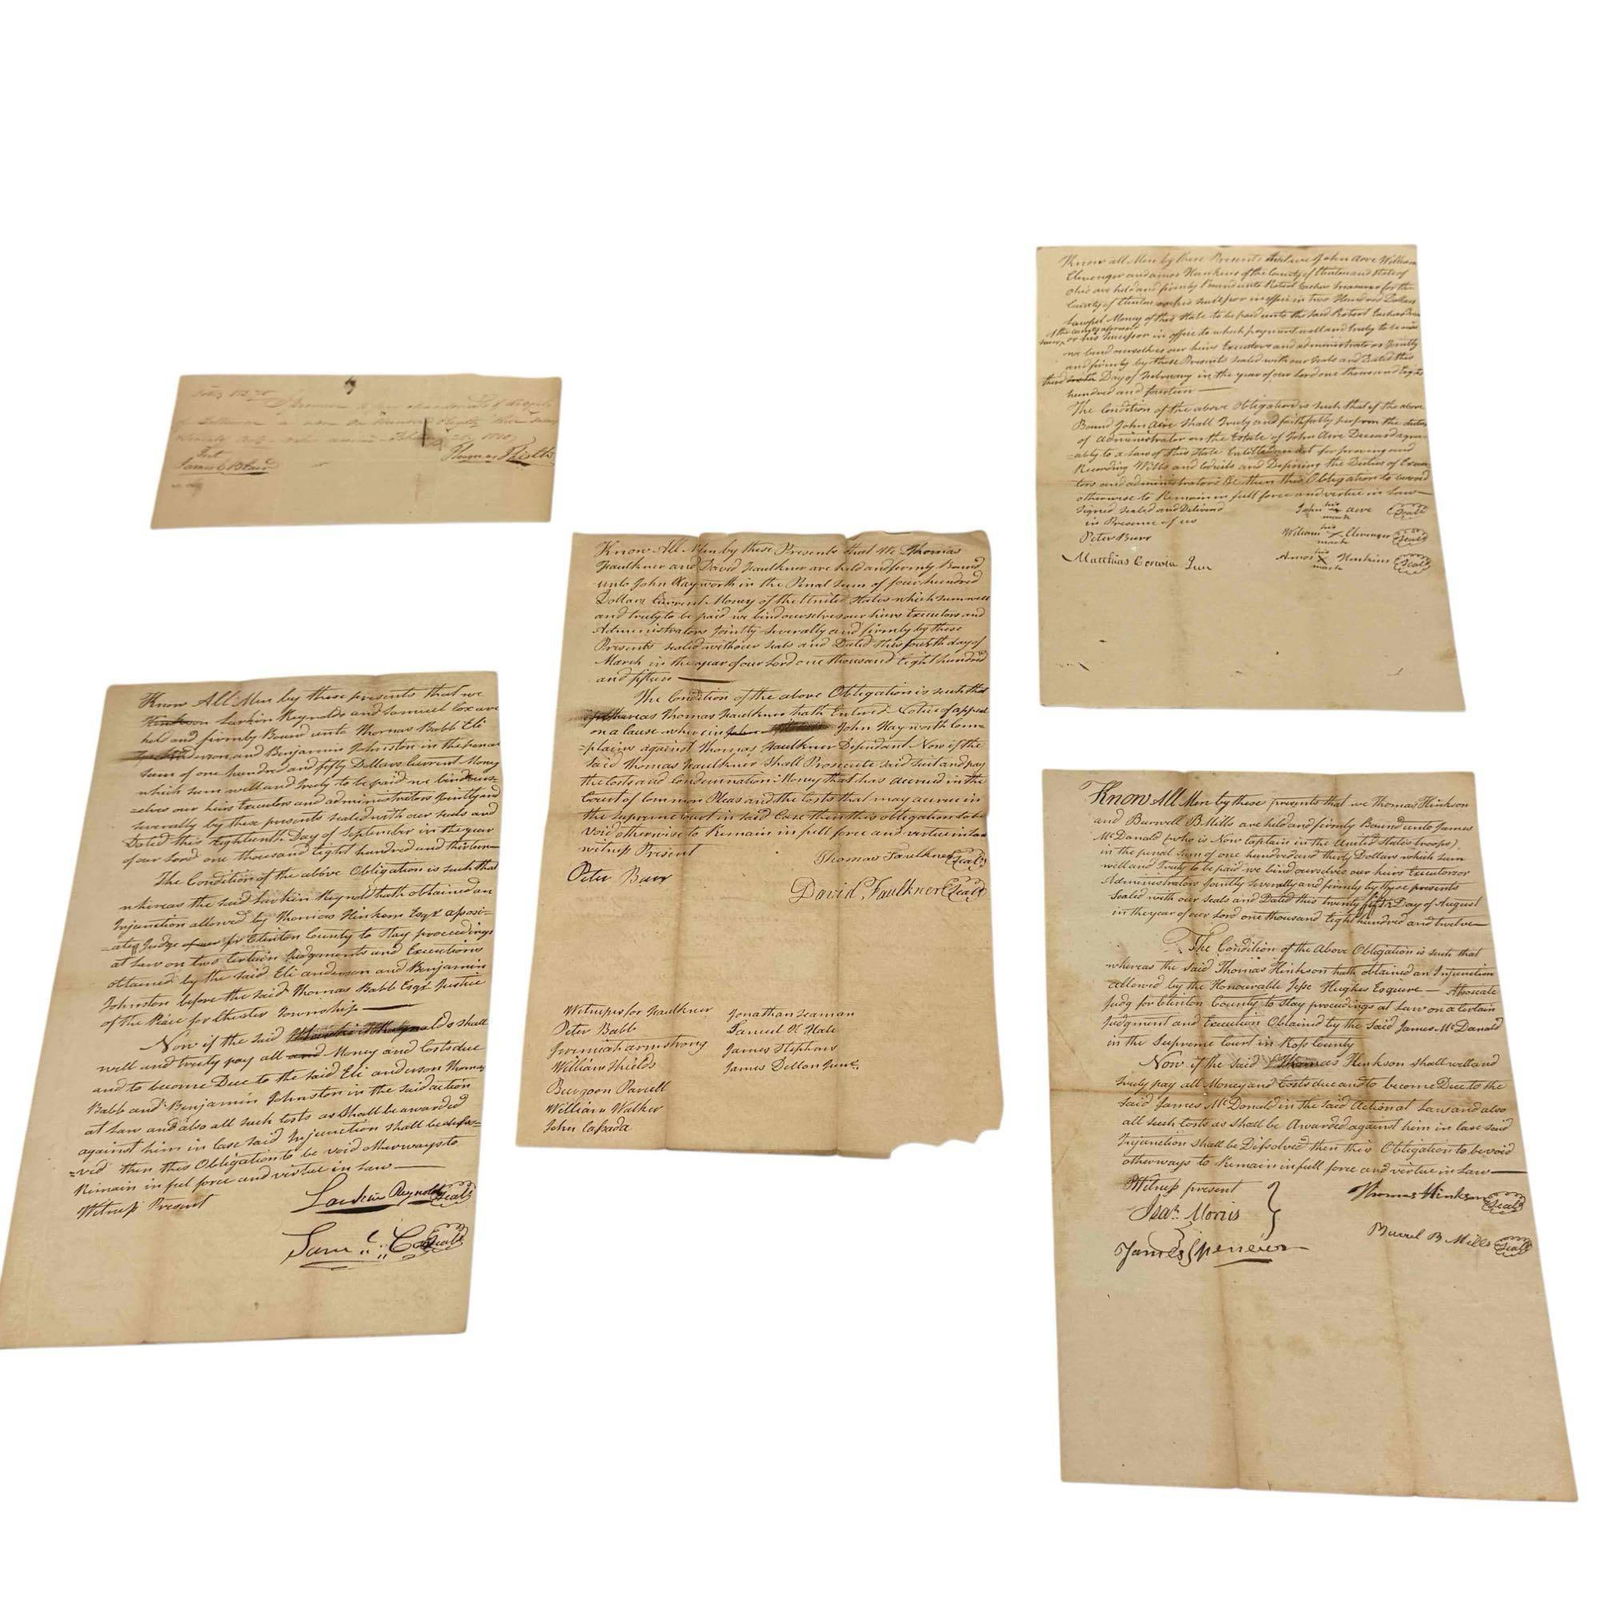 James C Blair
Thomas
Know All Men by these Presents that We Thomas
Faulkner and David Faulkner are held and firmly Bound
unto John Hayworth in the Penal Sum of four hundred
Dollars Current Money of the United States which sum well
and truly to be paid we bind ourselves our heirs Executors and
Administrators Jointly Severally and firmly by these
Presents Sealed with our Seals and Dated this fourth day of
March in the year of our Lord one thousand Eight hundred
and fifteen
The Condition of the above Obligation is such that
whereas Thomas Faulkner hath Entered Notice of appeal
on a Cause wherein John Hayworth Com
=plains against Thomas Faulkner Defendant Now if the
Said Thomas Faulkner Shall Prosecute Said Suit and pay
the Costs and Condemnation Money that has accrued in the
Court of Common Pleas and the Costs that may accrue in
the supreme Court in said Case then this obligation to be
Void otherwise to Remain in full force and virtue in Law
witness Present
Thomas Faulkner Seal
Peter Burr
David Faulkner Seal
Witnesses for Faulkner
Peter Babb
Jeremiah armstrong
William Shields
William Walker
Jonathan Seaman
Samuel Hale
James Stephens
James
Know all Men by these Presents that we John Aire William
Clevenger and amos Hankins of the County of Clinton and State of
Ohio are held and firmly Bound unto Robert Eachus Treasurer for the
County of Clinton his Successor in office in Two Hundred Dollars
Lawful Money of this State to be paid unto the Said Robert Eachus
or his Successor in office to which payment well and truly to be made
we bind ourselves our heirs Executors and administrators Jointly
and firmly by these Presents Sealed with our Seals and Dated this
Day of February in the year of our Lord one thousand Eight
hundred and fourteen
The Condition of the above Obligation is such that if the above
Bound John Aire Shall Truly and faithfully perform the duties
of Administrator on the Estate of John Aire Deceased agree
=ably to a Law of this State Entitled an Act for proving and
Recording Wills and Codicils and Defining the Duties of Execu
tors and administrators then this Obligation to be void
otherwise to Remain in full force and virtue in Law
Signed Sealed and Delivered
in Presence of us
John his mark Aire Seal
Peter Burr
William his X mark Clevenger Seal
Matthias Corwin Jun
Amos his X mark Hankins Seal
Know All Men by these presents that we
Larkin Reynolds and Samuel Cox are
held and firmly Bound unto Thomas Babb Eli
Anderson and Benjamin Johnston in the penal
Sum of one hundred and fifty Dollars Current Money
which sum well and truly to be paid we bind ourse
=elves our heirs Executors and administrators Jointly and
Severally by these presents sealed with our seals and
Dated this Eighteenth Day of September in the year
of our Lord one thousand Eight hundred and thirteen
The Condition of the above Obligation is such that
whereas the said Larkin Reynolds hath obtained an
Injunction allowed by Thomas Hinkson Esqr associ=
=ate Judge for Clinton County to Stay proceedings
at Law on two Certain Judgments and Executions
obtained by the said Eli anderson and Benjamin
Johnston before the said Thomas Babb Esqr Justice
of the Peace for Chester Township
Now if the said shall
well and truly pay all Money and Costs due
and to become Due to the said Eli anderson Thomas
Babb and Benjamin Johnston in the said action
at Law and also all such Costs as Shall be awarded
against him in Case said Injunction Shall be disso=
=ved then this Obligation to be void otherways to
Remain in full force and virtue in Law
Witness Present
Larkin Reynolds Seal
Saml Cox Seal
Know All Men by these presents that we Thomas Hinkson
and Burwell B. Mills are held and firmly Bound unto James
McDanald (who is Now Captain in the United States troops)
in the penal Sum of one hundred and thirty Dollars which sum
well and Truly to be paid we bind ourselves our heirs Executors or
Administrators Jointly severally and firmly by these presents
Sealed with our Seals and Dated this twenty fifth Day of August
in the year of our Lord one thousand Eight hundred and twelve
The Condition of the Above Obligation is such that
whereas the Said Thomas Hinkson hath obtained an Injunction
allowed by the Honourable Jesse Hughes Esquire Associate
Judg for Clinton County to Stay proceedings at Law on a Certain
Judgment and Execution Obtained by the Said James McDanald
in the Supreme Court in Ross County
Now if the Said Thomas Hinkson shall well and
truly pay all Money and Costs due and to become Due to the
Said James McDonald in the said Action at Law and also
all such Costs as Shall be Awarded against him in Case said
Injunction Shall be Dissolved then this Obligation to be void
otherways to Remain in full force and virtue in Law
Witness present
Isac Morris
James Spencer
Thomas Hinkson Seal
Burrel B Mills Seal